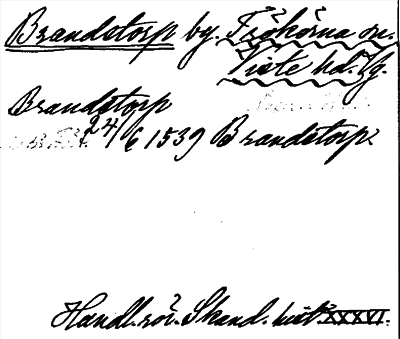 Brandstorp by. Frökinna sn.
Viste hd. Vg.
Brandstorp
24/6 1539 Brandstorp.
Handl. rör. Skand. hist. XXXVI.